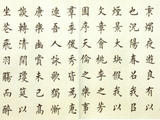 秉燭夜遊良有以
也況陽春召我以
煙景大塊假我以
文章會桃李之芳
園序天倫之樂事
群季俊秀皆為惠
連吾人詠歌獨慚
康樂幽賞未已高
談轉清開瓊筵以
坐花飛羽觴而醉